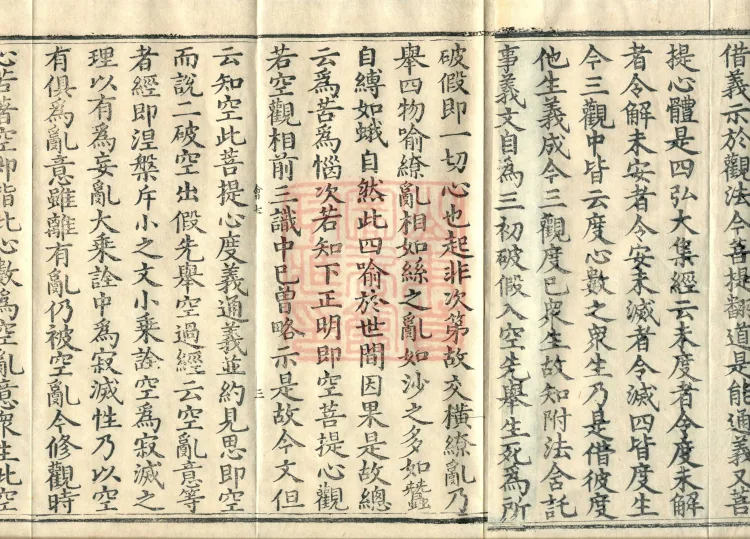 借義示於觀法今菩提翻道是能通義又菩
提心體是四弘大集經云未度者令度未解
者令解未安者令安未滅者令滅四皆度生
今三觀中皆云度心數之眾生乃是借彼度
他生義成今三觀度已眾生故知附法舍託
事義文自為三初破假入空先舉生死為所
破假即一切心也起非次第故交橫繚亂乃
舉四物喻繚亂相如絲之亂如沙之多如蠶
自縛如蛾自然此四喻於世間因果是故總
云為苦為惱次若知下正明即空菩提心觀
若空觀相前三識中已曾略示是故今文但
云知空此菩提心度義通義並約見思即空
而說二破空出假先舉空過經云空亂意等
者經即涅槃斥小之文小乘詮空為寂滅之
理以有為妄亂大乘詮中為寂滅性乃以空
有俱為亂意雖離有亂仍被空亂今修觀時
心若著空即指此心數為空亂意眾生此空
會七
三